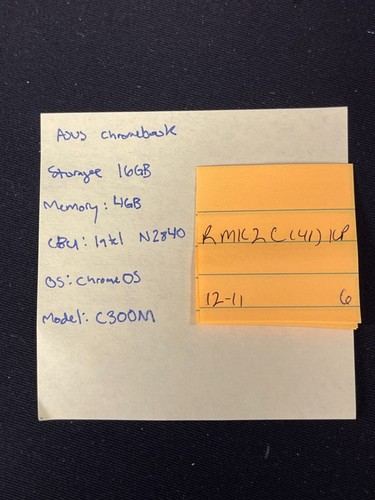 ASUS Chromebook
Storage 16GB
Memory: 4GB
CPU: Intel N2840
OS: ChromeOS
Model: C300M
RMK2C(41)KP
12-11 6